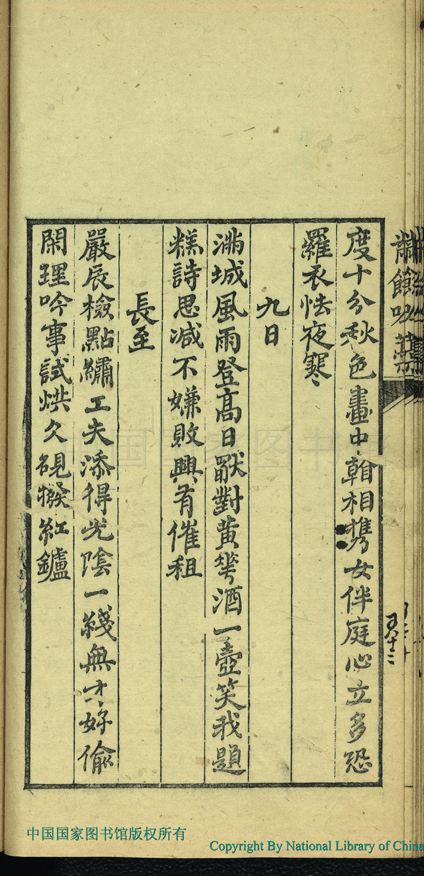 餘吟
度十分秋色畫中翰相携女伴庭心立多恐
羅衣怯夜寒
九日
滿城風雨登高日厭對黃華酒一壺笑我題
糕詩思减不嫌敗興有催租
長至
嚴辰檢點繡工夫添得光陰一綫無才好偷
閑理吟事試烘久硯撥紅鑪
中国国家图书馆版权所有
Copyright By National Library of China